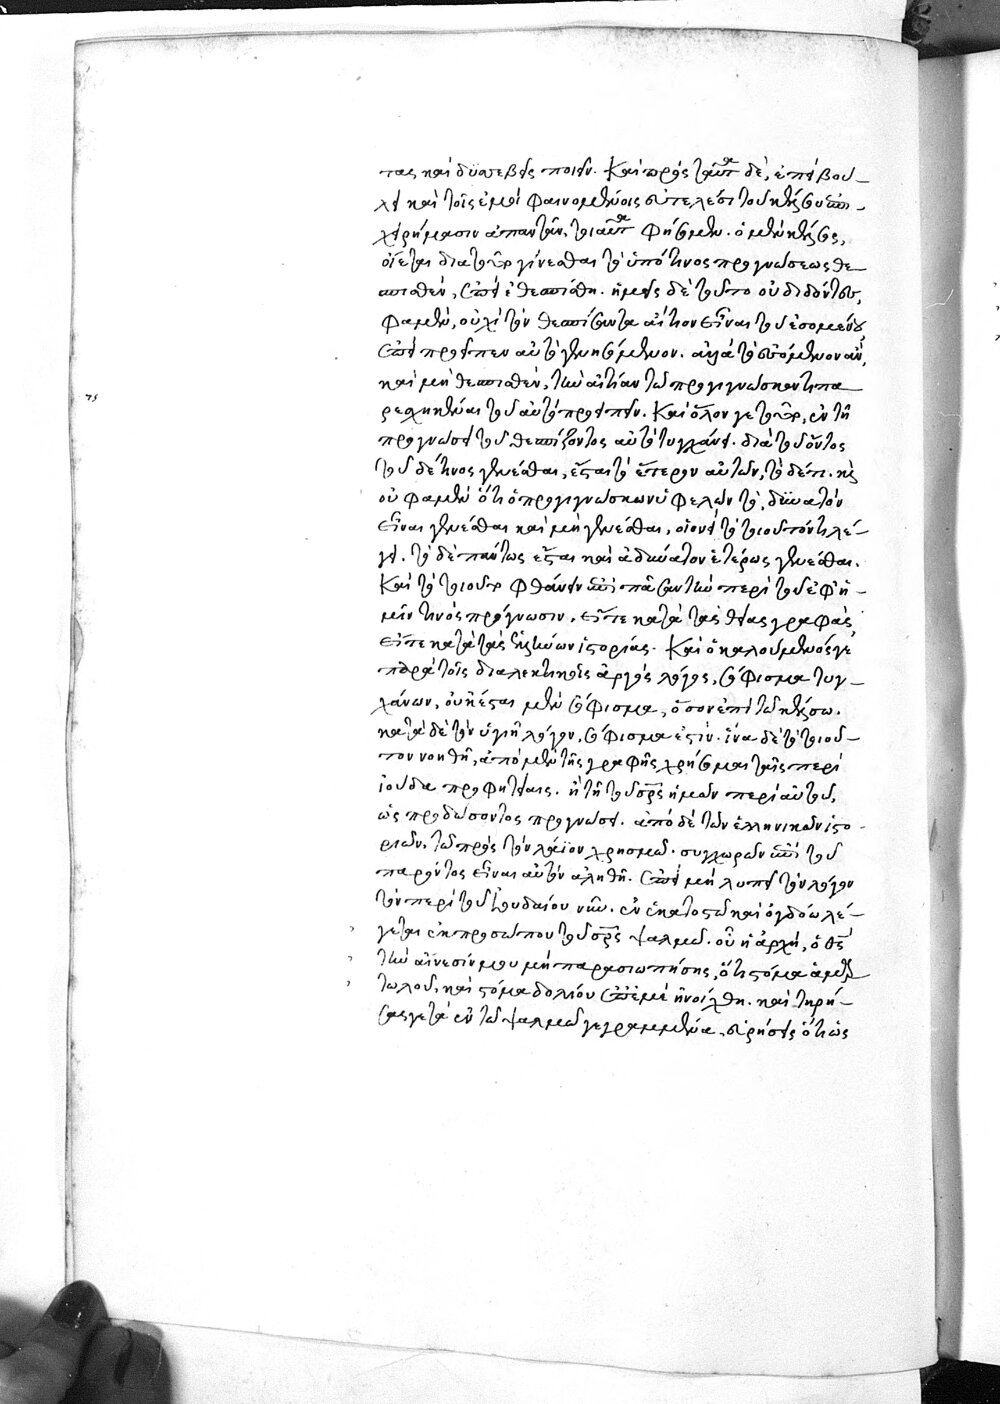 τας καὶ δυσεβεῖς ποιεῖν. Καὶ πρὸς ταῦτα δὲ, ἐπεὶ βού-
λει καὶ τοῖς ἐμοὶ φαινομένοις εὐτελέσι τοῦ κέλσου ἐπι-
χειρήμασιν ἀπαντᾶν, τοιαῦτα φήσομεν. ὁ μὲν κέλσος,
οἴεται διὰ τοῦτο γίνεσθαι τὸ ὑπό τινος προγνώσεως θε-
σπισθὲν, ἐπεὶ ἐθεσπίσθη. ἡμεῖς δὲ τοῦτο οὐ διδόντες,
φαμὲν, οὐχὶ τὸν θεσπίσαντα αἴτιον εἶναι τοῦ ἐσομένου
ἐπεὶ προεῖπεν αὐτὸ γενησόμενον. ἀλλὰ τὸ ἐσόμενον ἂν,
καὶ μὴ θεσπισθὲν, τὴν αἰτίαν τῷ προγιγνώσκοντι πα-
ρεσχηκέναι τοῦ αὐτὸ προειπεῖν. Καὶ ὅλον γε τοῦτο, ἐν τῇ
προγνώσει τοῦ θεσπίζοντος αὐτὸ τυγχάνει. διὰ τοῦ ὄντος
τοῦ δέ τινος γενέσθαι, ἔσται τὸ ἕτερον αὐτῶν, τόδέ τι. καὶ
οὐ φαμὲν ὅτι ὁ προγιγνώσκων ὑφελὼν τὸ, δυνατὸν
εἶναι γενέσθαι καὶ μὴ γενέσθαι, οἱονεὶ τὸ τοιοῦτόν τι λέ-
γει. τὸ δὲ πάντως ἔσται καὶ ἀδύνατον ἑτέρως γενέσθαι.
Καὶ τὸ τοιοῦτο φθάνει ἐπὶ πᾶσαν τὴν περὶ τοῦ ἐφ' ἡ-
μῖν τινὸς πρόγνωσιν, εἴτε κατὰ τὰς θείας γραφὰς,
εἴτε κατὰ τὰς ἑλλήνων ἱστορίας. Καὶ ὁ καλούμενός γε
παρὰ τοῖς διαλεκτικοῖς ἀργὸς λόγος, σόφισμα τυγ-
χάνων, οὐκ ἔσται μὲν σόφισμα, ὅσον ἐπὶ τῷ κέλσω.
κατὰ δὲ τὸν ὑγιῆ λόγον, σόφισμά ἐστιν. ἵνα δὲ τὸ τοιοῦ-
τον νοηθῆ, ἀπὸ μὲν τῆς γραφῆς χρήσομαι ταῖς περὶ
ἰούδα προφητείαις. ἢ τῆ τοῦ σρς ἡμῶν περὶ αὐτοῦ,
ὡς προδώσοντος προγνώσει. ἀπὸ δὲ τῶν ἑλληνικῶν ἱστο-
ριῶν, τῷ πρὸς τὸν λάϊον χρησμῷ. συγχωρῶν ἐπὶ τοῦ
παρόντος εἶναι αὐτὸν ἀληθῆ. ἐπεὶ μὴ λυπεῖ τὸν λόγον
τὸν περὶ τοῦ ἰουδαίου νῦν. ἐν ἑκατοστῷ καὶ ὀγδόω λέ-
γεται ἐκ προσώπου τοῦ σρς ψαλμῷ. οὗ ἡ ἀρχή, ὁ θς
τὴν αἴνεσίν μου μὴ παρασιωπήσης, ὅτι στόμα ἁμαρ-
τωλοῦ, καὶ στόμα δολίου ἐπ' ἐμὲ ἠνοίχθη. καὶ τηρή-
σας γε τὰ ἐν τῷ ψαλμῷ γεγραμμένα, εὑρήσεις ὅτι ὡς